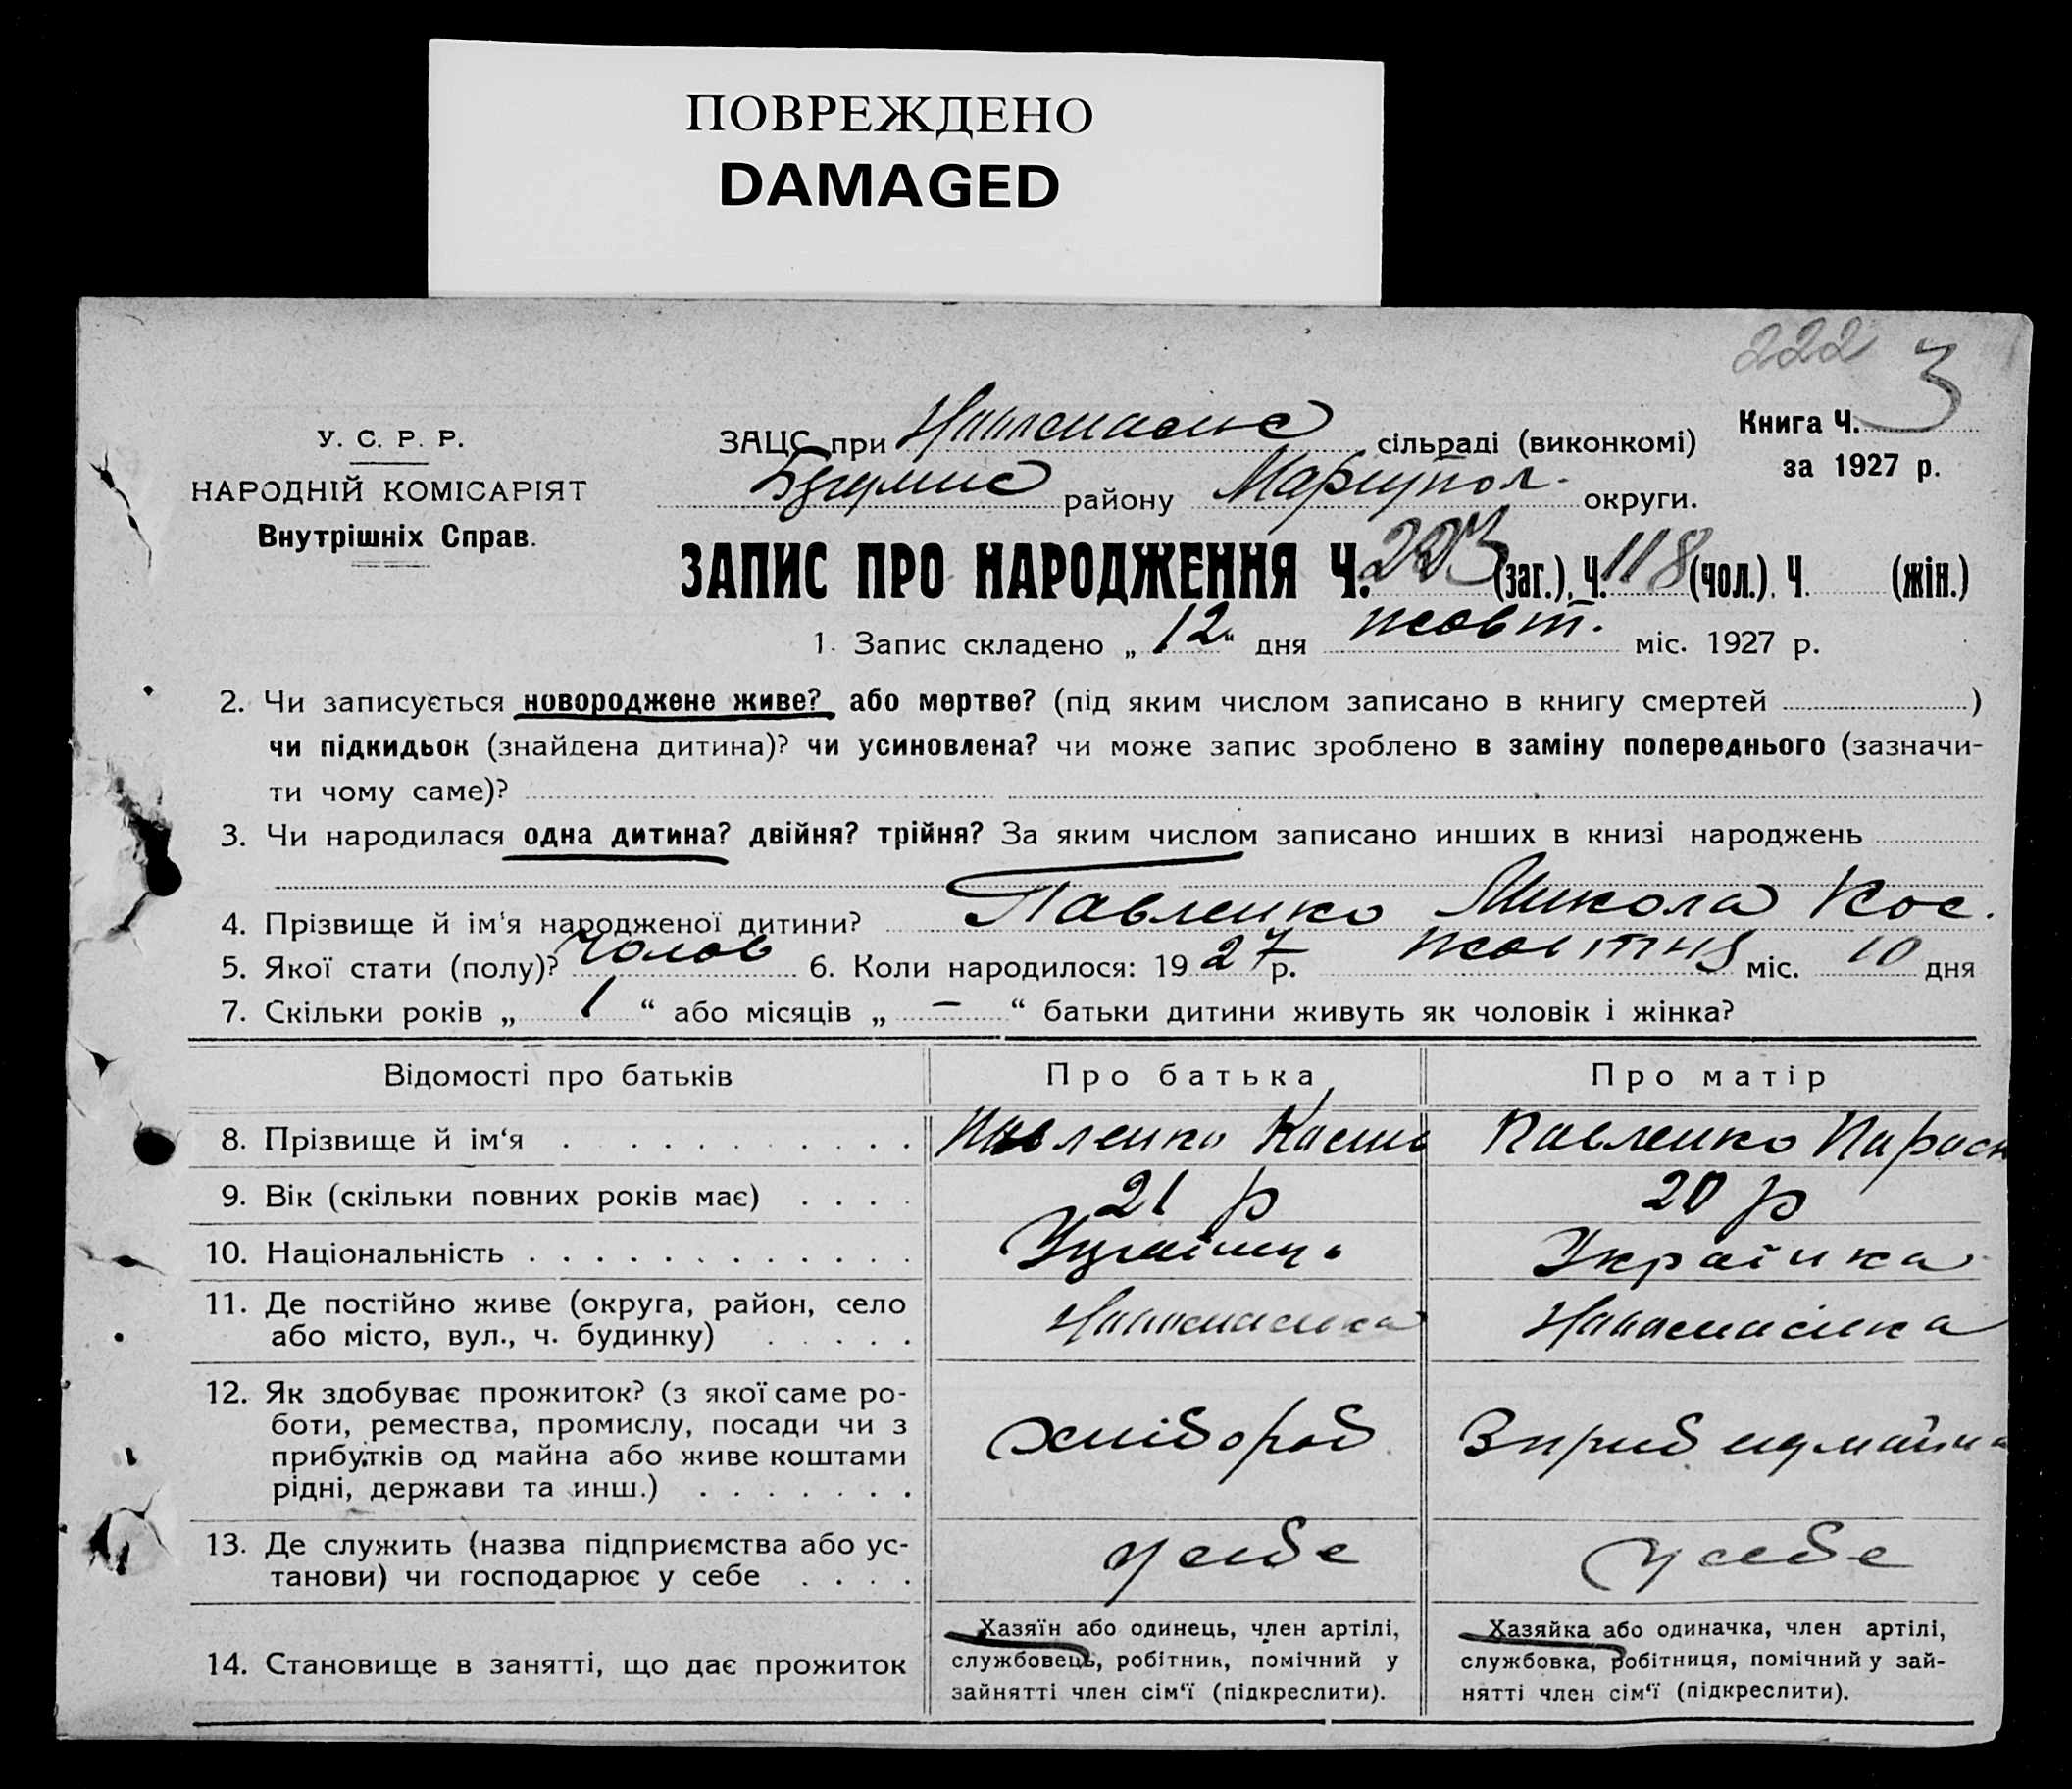 ПОВРЕЖДЕНО
DAMAGED
222
3
У. С. Р. Р.
НАРОДНІЙ КОМІСАРІЯТ
Внутрішніх Справ.
ЗАЦС при сільраді (виконкомі)
району Маріупол. округи.
Книга Ч. 3
за 1927 р.
ЗАПИС ПРО НАРОДЖЕННЯ Ч. 223 (заг.), Ч. 118 (чол.), Ч. (жін.)
1. Запис складено „ 12 “ дня жовт. міс. 1927 р.
2. Чи записується новороджене живе? або мертве? (під яким числом записано в книгу смертей )
чи підкидьок (знайдена дитина)? чи усиновлена? чи може запис зроблено в заміну попереднього (зазначи-
ти чому саме)?
3. Чи народилася одна дитина? двійня? трійня? За яким числом записано инших в книзі народжень
4. Прізвище й ім‘я народженої дитини? Павленко Микола Кос.
5. Якої стати (полу)? чолов 6. Коли народилося: 19 27 р. жовтня міс. 10 дня
7. Скільки років „ 1 “ або місяців „ — “ батьки дитини живуть як чоловік і жінка?
Відомості про батьків Про батька Про матір
8. Прізвище й ім‘я Павленко Павленко Параск
9. Вік (скільки повних років має) 21 р 20 р
10. Національність Українць Українка
11. Де постійно живе (округа, район, село
або місто, вул., ч. будинку)
12. Як здобуває прожиток? (з якої саме ро-
боти, ремества, промислу, посади чи з
прибутків од майна або живе коштами
рідні, держави та инш.)
хлібороб
13. Де служить (назва підприємства або ус-
танови) чи господарює у себе
у себе у себе
14. Становище в занятті, що дає прожиток
Хазяїн або одинець, член артілі,
службовець, робітник, помічний у
зайнятті член сім‘ї (підкреслити).
Хазяйка або одиначка, член артілі,
службовка, робітниця, помічний у зай-
нятті член сім‘ї (підкреслити).